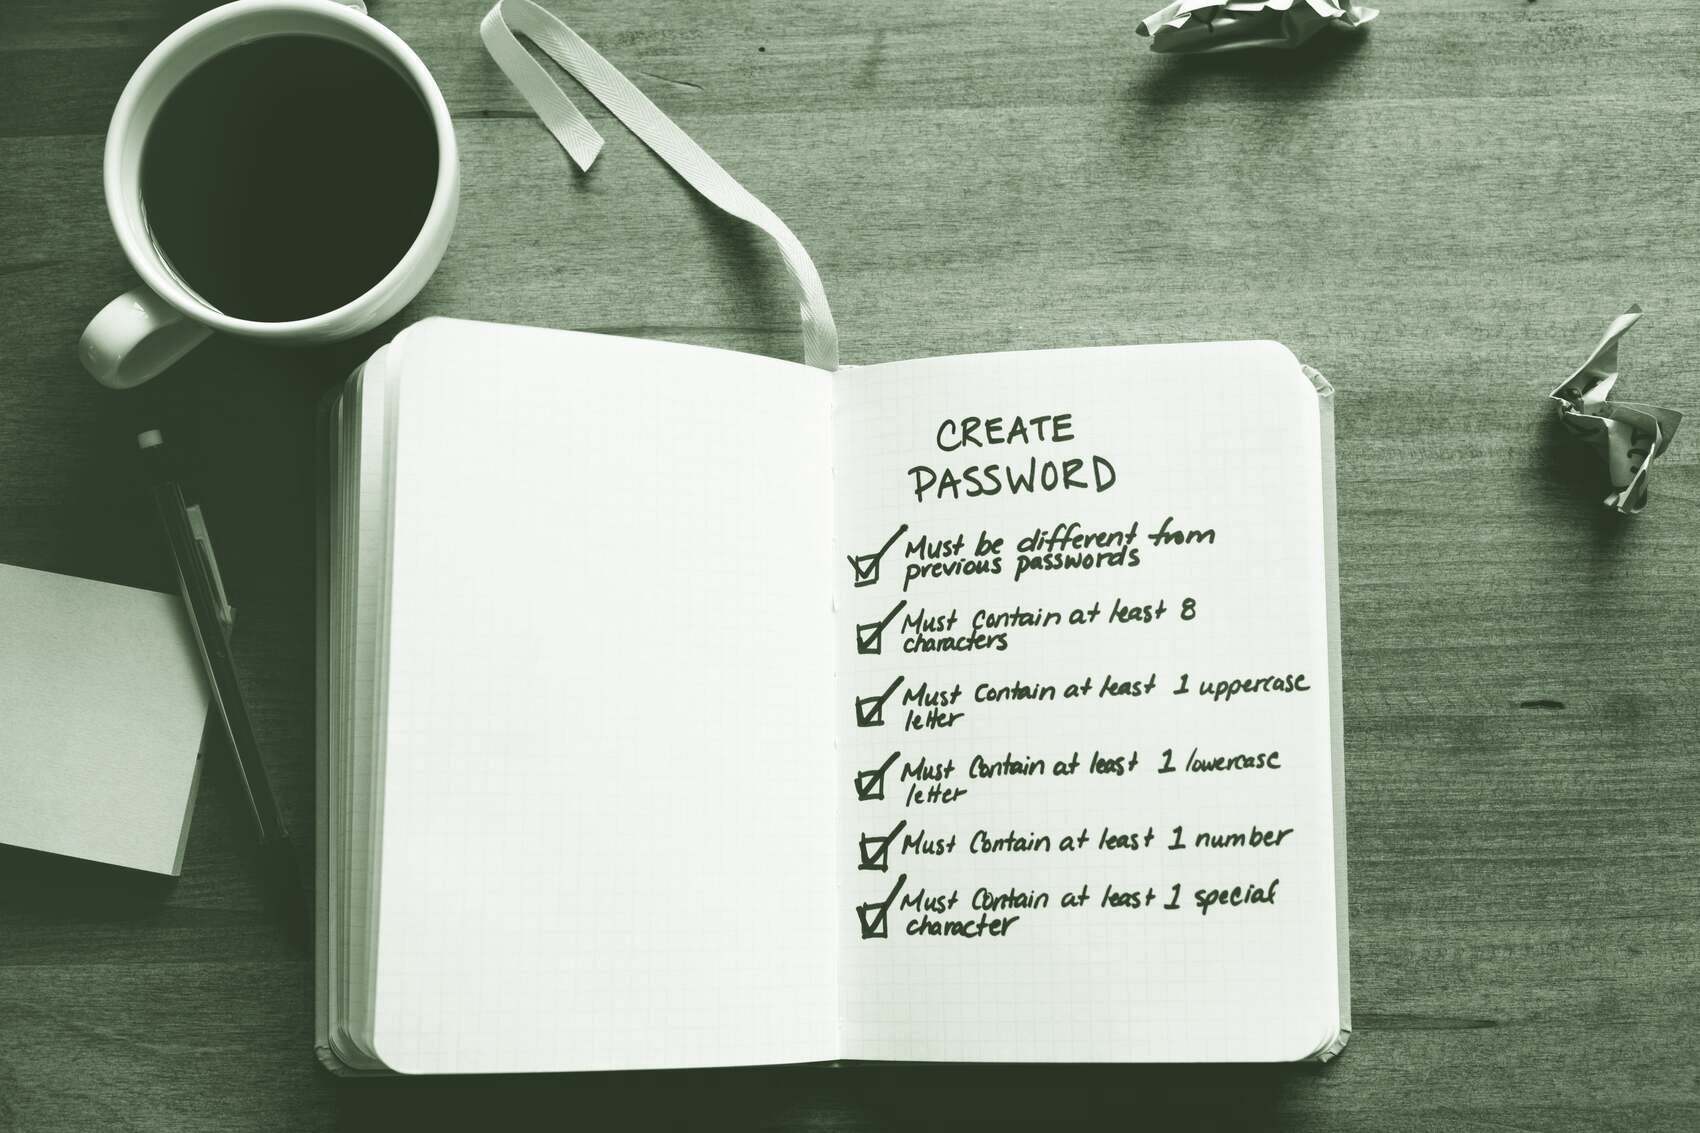 CREATE
PASSWORD
Must be different from
previous passwords
Must contain at least 8
characters
Must contain at least 1 uppercase
letter
Must contain at least 1 lowercase
letter
Must contain at least 1 number
Must contain at least 1 special
character